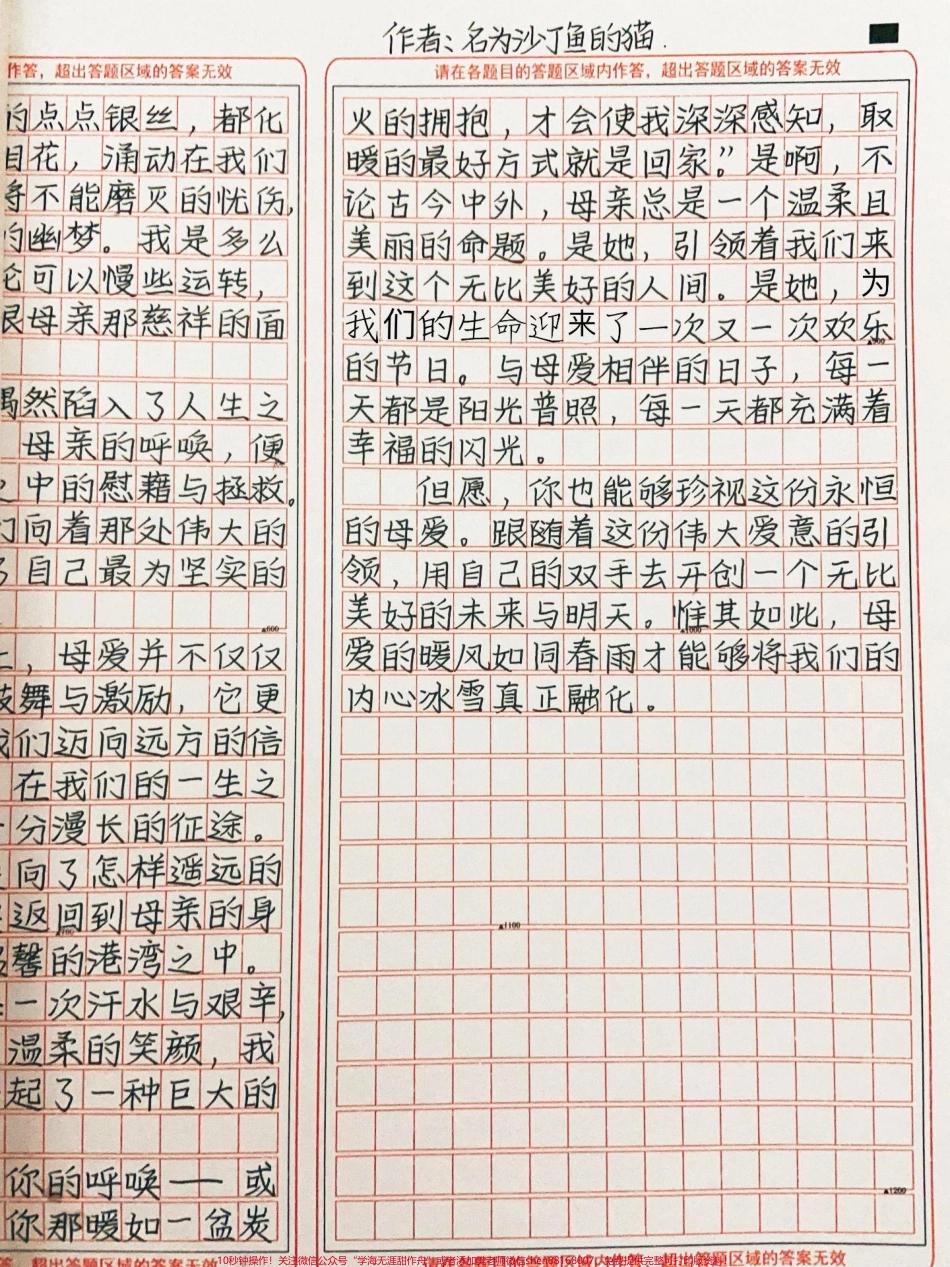 作者：名为沙丁鱼的猫.
作答，超出答题区域的答案无效
的点点银丝，都化
目花，涌动在我们
将不能磨灭的忧伤，
的幽梦。我是多么
轮可以慢些运转，
母亲那慈祥的面
偶然陷入了人生之
母亲的呼唤，便
之中的慰藉与拯救。
们向着那处伟大的
了自己最为坚实的
▲600
上，母爱并不仅仅
鼓舞与激励，它更
我们迈向远方的信
在我们的一生之
十分漫长的征途。
向了怎样遥远的
返回到母亲的身
馨的港湾之中。
一次汗水与艰辛，
温柔的笑颜，我
起了一种巨大的
你的呼唤——或
你那暖如一盆炭
请在各题目的答题区域内作答，超出答题区域的答案无效
火的拥抱，才会使我深深感知，取
暖的最好方式就是回家。”是啊，不
论古今中外，母亲总是一个温柔且
美丽的命题。是她，引领着我们来
到这个无比美好的人间。是她，为
我们的生命迎来了一次又一次欢乐
▲900
的节日。与母爱相伴的日子，每一
天都是阳光普照，每一天都充满着
幸福的闪光。
但愿，你也能够珍视这份永恒
的母爱。跟随着这份伟大爱意的引
领，用自己的双手去开创一个无比
美好的未来与明天。惟其如此，母
▲1000
爱的暖风如同春雨才能够将我们的
内心冰雪真正融化。
▲1100
▲1200
10秒钟操作！关注微信公众号“学海无涯甜作舟”
超出答题区域的答案无效